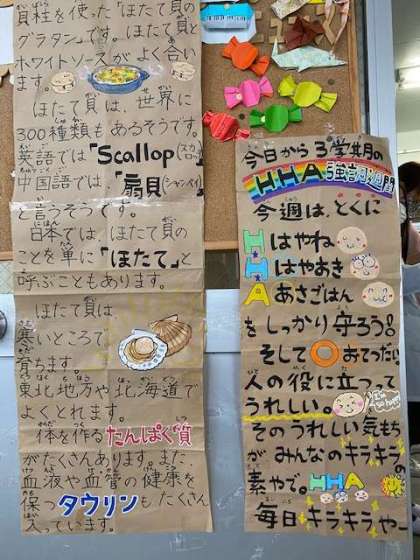 貝柱を使った「ほたて貝の
グラタン」です。ほたて貝と
ホワイトソースがよく合い
ます。
ほたて貝は、世界に
300種類もあるそうです。
英語では「Scallop(スカロップ)」
中国語では、「扇貝(シャンベイ)」
と言うそうです。
日本では、ほたて貝の
ことを単に「ほたて」と
呼ぶこともあります。
ほたて貝は、
寒いところで
育ちます。
東北地方や北海道で
よくとれます。
体を作るたんぱく質
がたくさんあります。また、
血液や血管の健康を
保つタウリンもたくさん
入っています。
今日から3学期の
HHA強調週間
今週は、とくに
H はやね
H はやおき
A あさごはん
をしっかり守ろう!
そして〇おてつだい
人の役に立つって
うれしい。
そのうれしい気もち
がみんなのキラキラの
素やで。HHA
毎日キラキラやー